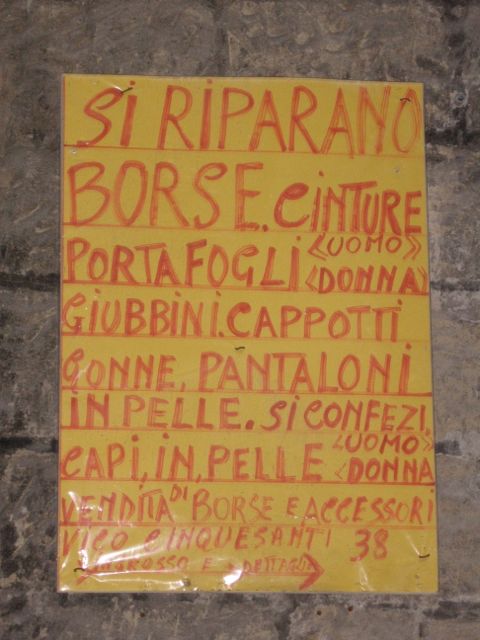 Si RiPARANO
BORSE. CiNTURE
PORTAFOGLi «UOMO» «DONNA»
GiUBBiNi. CAPPOTTi
GONNE. PANTALONi
iN PELLE. Si CONFEZi.
CAPi, iN, PELLE «UOMO» «DONNA
VENDiTA Di BORSE E ACCESSORi
ViCO CiNQUESANTi 38
E DETTAGLiO